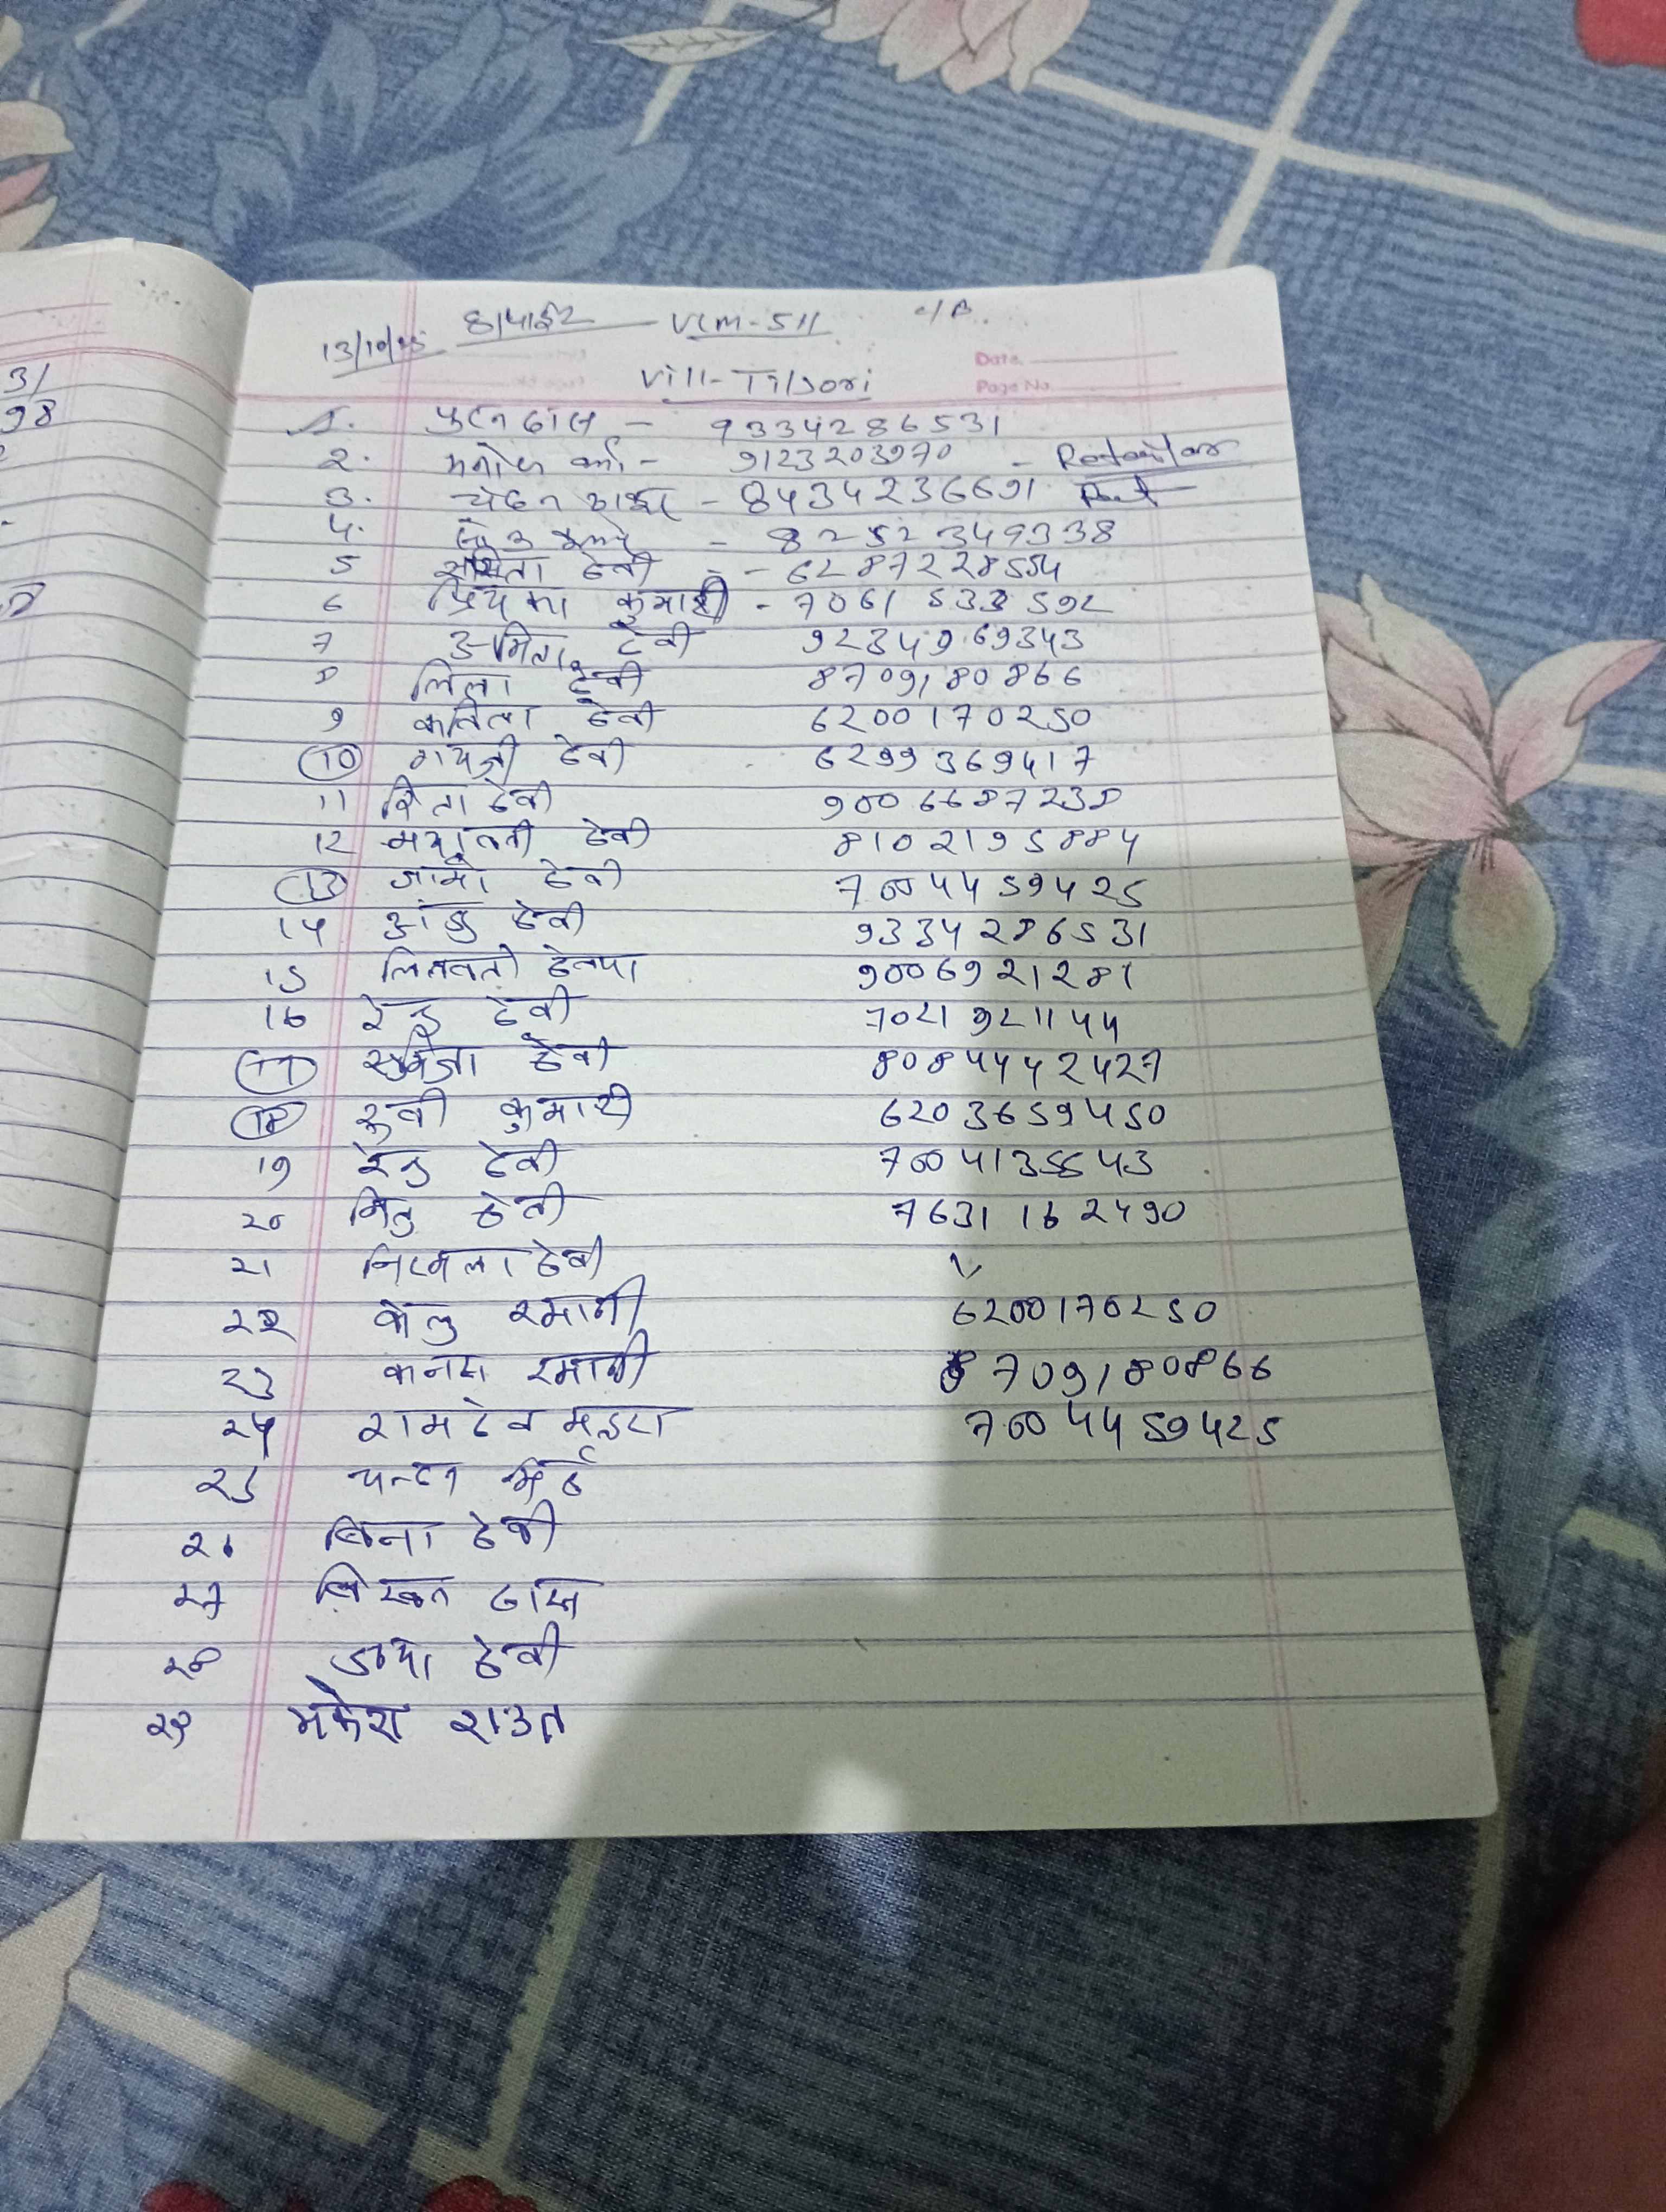 13/10/25 हापाईट - VCM-511 c/B.
Vill- Tilsori
Date
Page No.
31
98
1. फुटन दास - 9334286531
2. मनोज वर्मा - 9123203970 - Retailor
3. चेदन - 8434236691
4. - 8252349338
5 सरिता देवी - 6287228554
6 प्रियंका कुमारी - 7061533592
7 उर्मिला देवी 9234969343
8 लिला देवी 8709180866
9 कविता देवी 6200170250
10 गायत्री देवी 6299369417
11 रिता देवी 9006687238
12 मयावती देवी 8102195884
13 देवी 7004459425
14 अंजु देवी 9334286531
15 लिलवती देव्या 9006921281
16 रेनु देवी 7021921144
17 सुमित्रा देवी 8084442427
18 रूबी कुमारी 6203659450
19 रेनु देवी 7004135543
20 मितु देवी 7631162490
21 निरमला देवी "
22 केलु रमानी 6200170250
23 रमानी 8709180866
24 रामदेव महरा 7004459425
25 चन्दन
26 बिना देवी
27 दास
28 देवी
29 मुकेश राउत